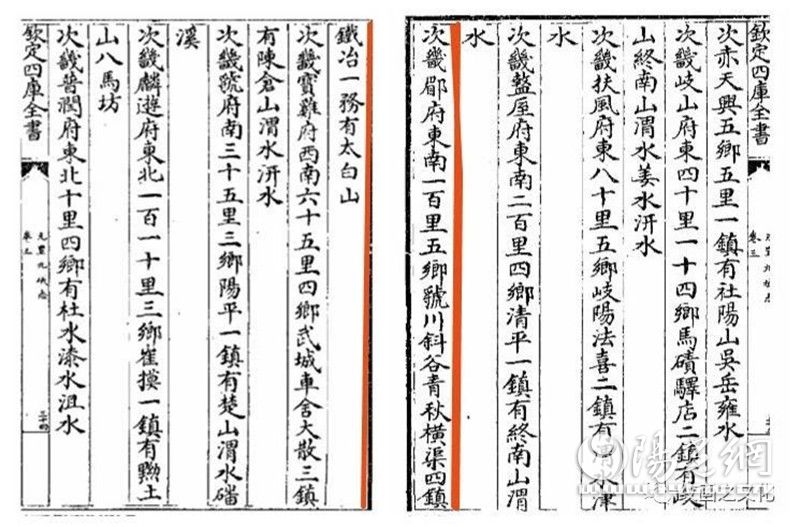 欽定四庫全書
卷三
次赤天興五鄉五里一鎮有社陽山吳岳雍水
次畿岐山府東四十里一十四鄉馬磧驛店二鎮有岐
山終南山渭水姜水汧水
次畿扶風府東八十里五鄉岐陽法喜二鎮有水津
水
次畿盩厔府東南二百里四鄉清平一鎮有終南山渭
水
次畿郿府東南一百里五鄉虢川斜谷青秋橫渠四鎮
鐵冶一務有太白山
次畿寶雞府西南六十五里四鄉武城車舍大散三鎮
有陳倉山渭水汧水
次畿虢府南三十五里三鄉陽平一鎮有楚山渭水磻
溪
次畿麟遊府東北一百一十里三鄉崔摸一鎮有黝土
山八馬坊
次畿普潤府東北十里四鄉有杜水漆水沮水
欽定四庫全書
元豐九域志
卷三